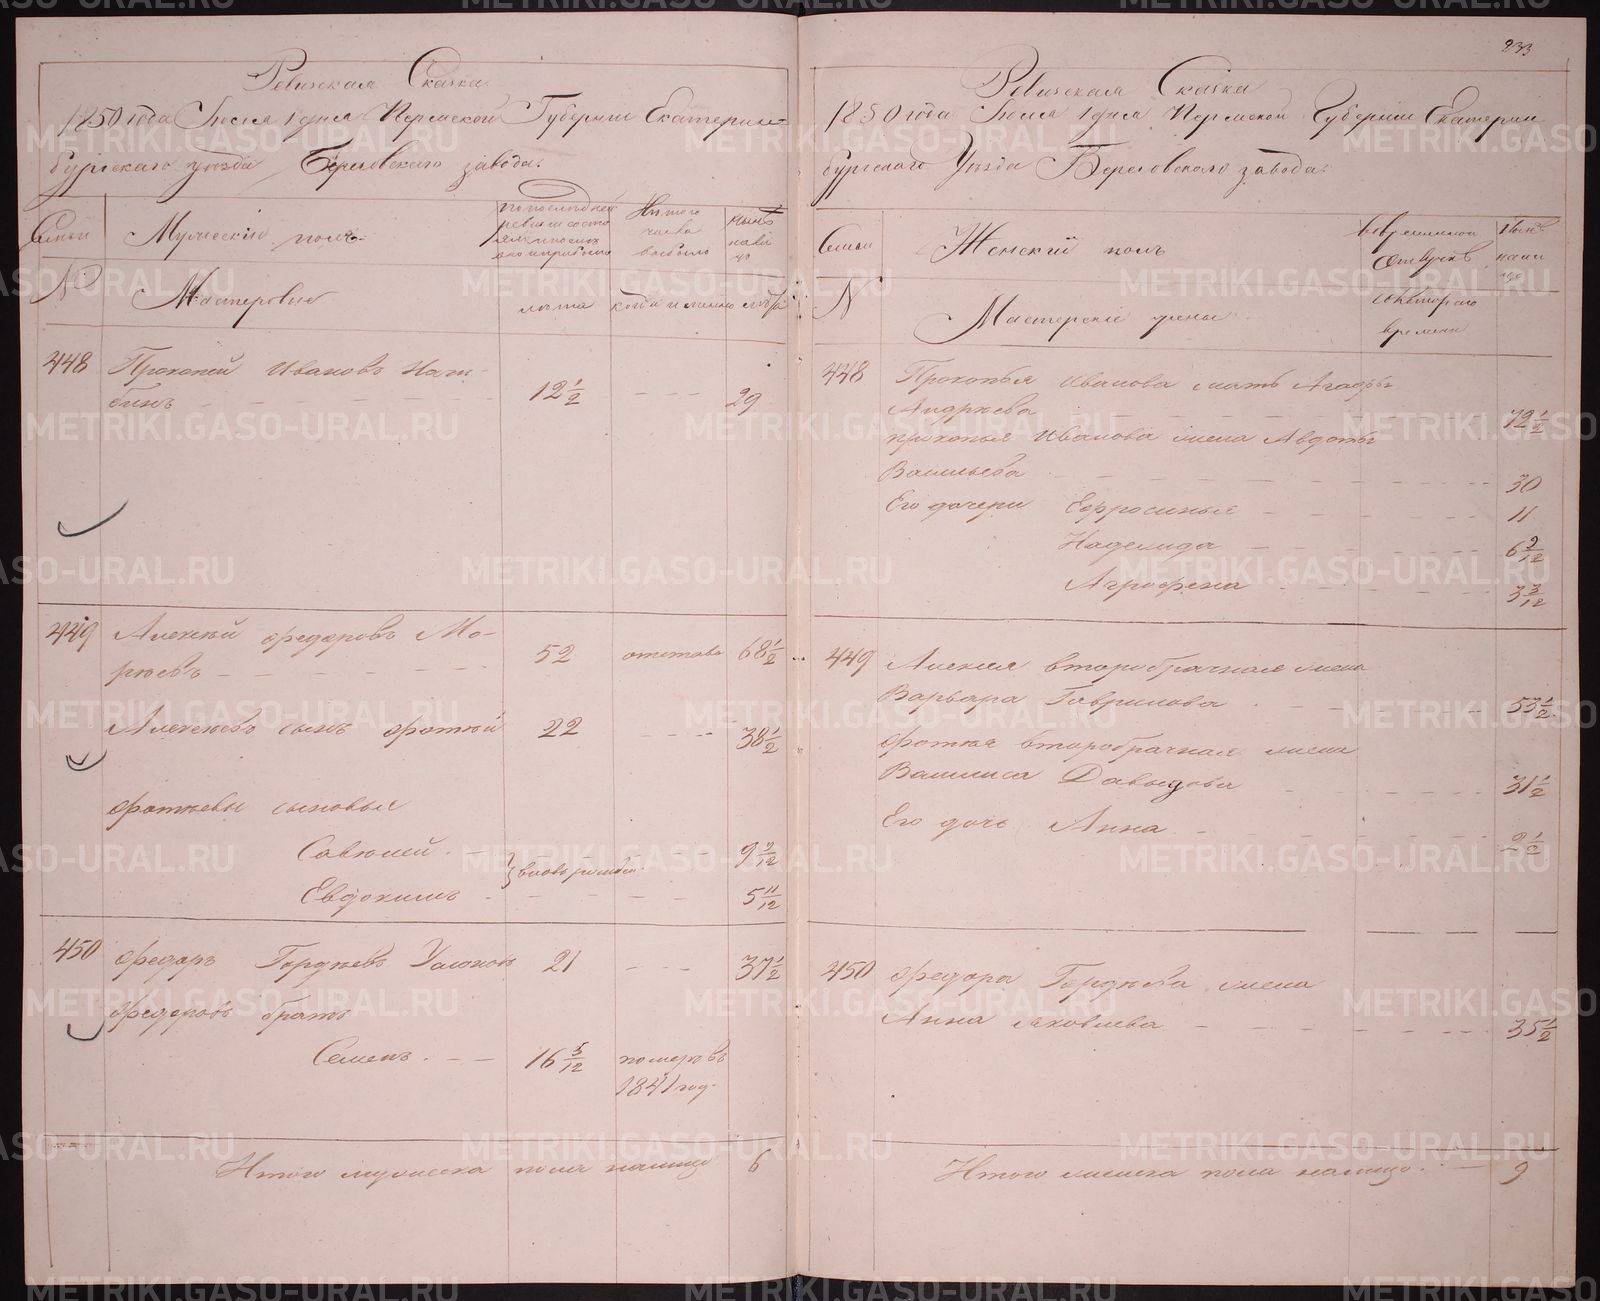 233
Ревизская Сказка
1850 года Июля 1 дня Пермской Губернии Екатерин-
бургскаго уезда Березовскаго завода.
Семьи Мужеский полъ. По последней ревизии состояло и после оно прибыло Из того числа выбыло Ныне на лицо
№ Мастеровые лета когда и именно лета
448 Прокопей Ивановъ
бинъ 12 1/2 29
449 Алексей Федоровъ Мо-
ревъ 52 отставъ 68 1/2
Алексеевъ сынъ Фотий 22 38 1/2
Фотиевы сыновья
Савелий 9 9/12
вновь рожден
Евдокимъ 5 11/12
450 Федоръ Гордеевъ 21 37 1/2
Федоровъ братъ
Семенъ. 16 5/12 померъ въ
1841 год.
Итого мужеска пола налицо 6
Ревизская Сказка
1850 года Июля 1 дня Пермской Губернии Екатерин
бургскаго Уезда Березовскаго завода.
Семьи Женский полъ во временной отлучке Ныне на лицо
№ Мастерские жены с котораго времени
448 Прокопья Иванова мать Агафья
Андреева 72 1/2
Прокопья Иванова жена Авдотья
Васильева 30
Его дочери Ефросинья 11
Надежда 6 2/12
Агрофена 3 3/12
449 Алексея второбрачная жена
Варвара Гаврилова 53 1/2
Фотия второбрачная жена
Василиса Давыдова 31 1/2
Его дочь Анна 2 1/2
450 Федора Гордеева жена
Анна Яковлева 35 1/2
Итого женска пола налицо. 9
METRIKI.GASO-URAL.RU